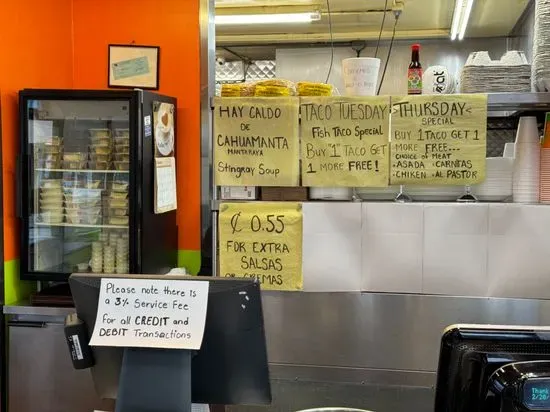 HAY CALDO
DE
CAHUAMANTA
MANTARAYA
Stingray Soup
TACO TUESDAY
Fish Taco Special
Buy "1" TACO GET
1 MORE FREE!
THURSDAY
SPECIAL
BUY 1 TACO GET 1
MORE FREE...
CHOICE OF MEAT
-ASADA -CARNITAS
-CHIKEN -AL PASTOR
¢ 0.55
FOR EXTRA
SALSAS
OR CREMAS
Please note there is
a 3% Service Fee
For all CREDIT and
DEBIT Transactions
Thank